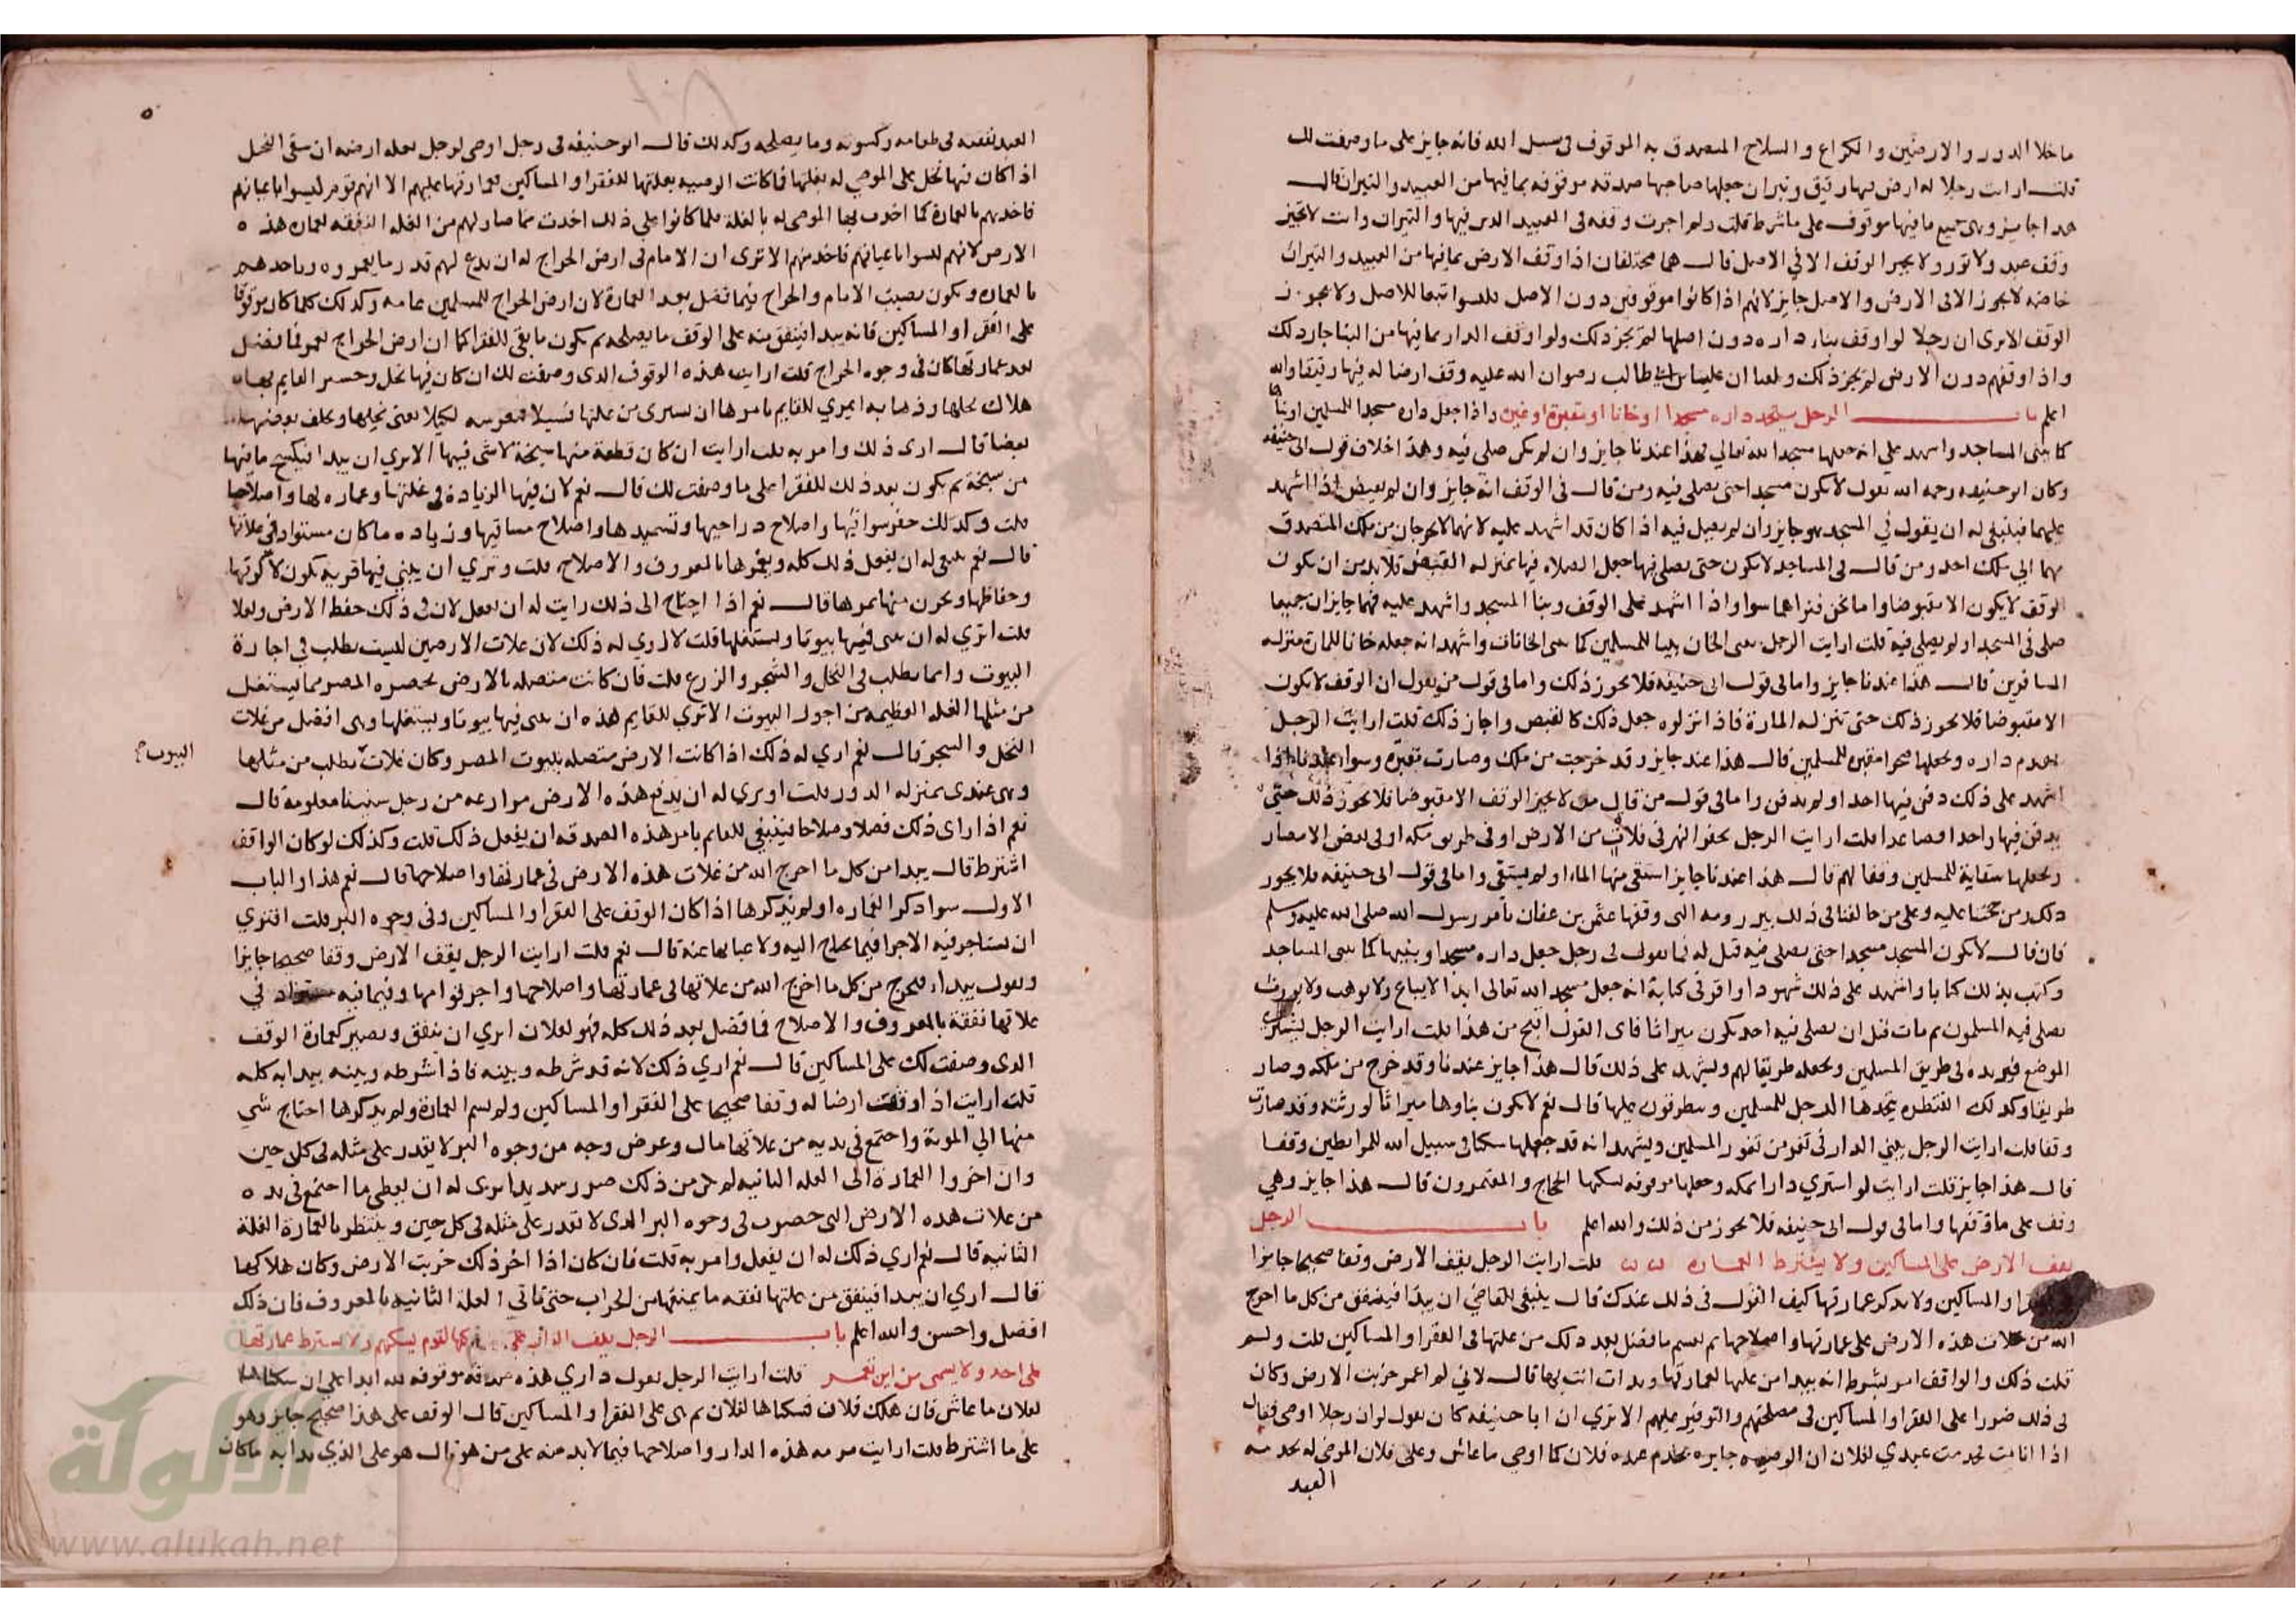 ما خلا الدور والارضين والكراع والسلاح المتصدق به الموقوف في سبيل الله فانه جايز على ما وصفت لك
قلت ارايت رجلا له ارض فيها رقيق وثيران جعلها صاحبها صدقه موقوفه بما فيها من العبيد والثيران قال
هذا جايز وهى جميع ما فيها موقوف على ما شرط قلت ولم اجزت وقفه فى العبيد الدى فيها والثيران وانت لا تجيز
وقف عبد ولا ثور ولا يجير الوقف الا في الاصل قال هما مختلفان اذا وقف الارض بما فيها من العبيد والثيران
خاصه لا يجوز الا فى الارض والاصل جايز لانهم اذا كانوا موقوفين دون الاصل فليسوا تبعا للاصل ولا يجوز
الوقف الا ترى ان رجلا لو اوقف بناء داره دون اصلها لم يجز ذلك ولو اوقف الدار بما فيها من البنا جاز ذلك
واذا وقفهم دون الارض لم يجز ذلك وبلغنا ان علي بن ابي طالب رضوان الله عليه وقف ارضا له فيها رقيقا والله
اعلم باب الرجل يتخذ داره مسجدا او خانا او مقبرة او غيره واذا جعل داره مسجدا للمسلمين وبناها
كما يبنى المساجد واشهد على انه جعلها مسجدا لله تعالى فهذا عندنا جايز وان لم يكن صلى فيه وهذا خلاف قول ابى حنيفه
وكان ابو حنيفه رحمه الله يقول لا يكون مسجدا حتى يصلى فيه ومن قال فى الوقف انه جايز وان لم يقبض اذا اشهد
عليهما فينبغى له ان يقول في المسجد هو جايز وان لم يصل فيه اذا كان قد اشهد عليه لانهما لا يخرجان من ملك المتصدق
بهما الى ملك احد ومن قال فى المساجد لا يكون حتى يصلى فيها جعل الصلاه فيها بمنزله القبض فلا بد من ان يكون
الوقف لا يكون الا مقبوضا واما نحن فنراهما سوا واذا اشهد على الوقف وبنا المسجد واشهد عليه فهما جايزان جميعا
صلى فى المسجد او لم يصلى فيه قلت ارايت الرجل يبنى الخان يبنيها للمسلمين كما يبنى الخانات واشهد انه جعله خانا للمارة منزله
المسافرين قال هذا عندنا جايز واما فى قول ابى حنيفه فلا يجوز ذلك واما فى قول من يقول ان الوقف لا يكون
الا مقبوضا فلا يجوز ذلك حتى تنزله المارة فاذا نزلوه جعل ذلك كالقبض واجاز ذلك قلت ارايت الرجل
يهدم داره ويجعلها صحرا مقبره للمسلمين قال هذا عند جايز وقد خرجت من ملك وصارت مقبره وسوا عندنا اذا
اشهد على ذلك دفن فيها احد او لم يدفن واما فى قول من قال لا يجيز الوقف الا مقبوضا فلا يجوز ذلك حتى
يدفن فيها واحد فصاعدا قلت ارايت الرجل يحفر النهر فى فلاة من الارض او فى طريق مكه او فى بعض الامصار
ويجعلها سقاية للمسلمين وقفا لهم قال هذا عندنا جايز استقى منها الماء او لم يستقى واما فى قول ابى حنيفه فلا يجوز
ذلك ومن حجتنا عليه وعلى من خالفنا فى ذلك بير رومه التى وقفها عثمن بن عفان بامر رسول الله صلى الله عليه وسلم
فان قال لا يكون المسجد مسجدا حتى يصلى فيه قيل له فما تقول فى رجل جعل داره مسجدا وبنيها كما يبنى المساجد
وكتب بذلك كتابا واشهد على ذلك شهودا واقر فى كتابه انه جعل مسجد الله تعالى ابدا لا يباع ولا يوهب ولا يورث
يصلى فيه المسلمون ثم مات قبل ان يصلى فيه احد يكون ميراثا فاى القول اقبح من هذا قلت ارايت الرجل يشترى
الموضع فيزيده فى طريق المسلمين ويجعله طريقا لهم ويشهد على ذلك قال هذا جايز عندنا وقد خرج من ملكه وصار
طريقا وكذلك القنطره يتخذها الرجل للمسلمين ويتطرقون عليها قال نعم لا يكون بناوها ميراثا لورثته وقد صارت
وقفا قلت ارايت الرجل يبني الدار فى ثغر من ثغور المسلمين ويشهد انه قد جعلها سكنا فى سبيل الله للمرابطين وقفا
قال هذا جايز قلت ارايت لو اشترى دارا بمكه وجعلها موقوفه ليسكنها الحجاج والمعتمرون قال هذا جايز وهي
وقف على ما وقفها واما فى قول ابى حنيفه فلا يجوز من ذلك والله اعلم باب الرجل
يقف الارض على المساكين ولا يشترط العماره قلت ارايت الرجل يقف الارض وقفا صحيحا جايزا
والمساكين ولا يذكر عمارتها كيف القول فى ذلك عندك قال ينبغى للقاضى ان يبدا فينفق من كل ما اخرج
الله من غلات هذه الارض على عمارتها واصلاحها ثم يقسم ما فضل بعد ذلك من غلتها فى الفقرا والمساكين قلت ولم
قلت ذلك والواقف لم يشترط انه يبدا من غلتها لعمارتها وبدات انت بها قال لاني لو لم اعمر خربت الارض وكان
فى ذلك ضررا على الفقرا والمساكين فى مصلحتهم والتوفير عليهم الا ترى ان ابا حنيفه كان يقول لو ان رجلا اوصى فقال
اذا انا مت يخدمت عبدي لفلان ان الوصيه جايره يخدم عبده فلان كما اوصى ما عاش وعلى فلان الموصى له بخدمه
العبد
٥
العبد نفقته فى طعامه وكسوته وما يصلحه وكذلك قال ابو حنيفه فى رجل اوصى لرجل بغله ارضه ان سقى النخل
اذا كان فيها نخل على الموصى له بغلتها فاذا كانت الوصيه بغلتها للفقرا والمساكين فعمارتها عليهم الا انهم قوم ليسوا باعيانهم
فاخذهم بالعمارة كما اخذت بها الموصى له بالغلة فلما كانوا على ذلك اخذت مما صار لهم من الغله النفقه لعمارة هذه
الارض لانهم ليسوا باعيانهم فاخذ منهم الا ترى ان الامام فى ارض الخراج له ان يدع لهم قدر ما يعمروه وياخذهم
بالعماره ويكون نصيب الامام والخراج فيما فضل بعد العمارة لان ارض الخراج للمسلمين عامه وكذلك كلما كان موقوفا
على الفقرا والمساكين فانه يبدا فينفق منه على الوقف ما يصلحه ثم يكون ما بقى للفقرا كما ان ارض الخراج تعمر فما فضل
بعد عمارتها كان فى وجوه الخراج قلت ارايت هذه الوقوف الدى وصفت لك ان كان فيها نخل وخشى القايم بها
هلاك نخلها وذهابه ايرى للقايم بامرها ان يشترى من غلتها فسيلا فيغرسه لكيلا يفنى نخيلها ويخلف بعضها
بعضا قال ارى ذلك وامر به قلت ارايت ان كان قطعة منها سبخة لا شى فيها الا يري ان يبدا فيكسح ما فيها
من سبخة ثم يكون بعد ذلك للفقرا على ما وصفت لك قال نعم لان فيها الزيادة فى غلتها وعماره لها واصلاحها
قلت وكذلك حفر سواقيها واصلاح دراجيها وتسميدها واصلاح مساقيها وزياده ما كان مستزاد فى غلاتها
قال نعم ينبغى له ان يفعل ذلك كله ويعمرها بالمعروف والاصلاح قلت وترى ان يبني فيها قرية يكون لاكرتها
وحفاظها ويحرز منها ثمرها قال نعم اذا احتاج الى ذلك رايت له ان يفعل لان فى ذلك حفظ الارض وغلا
قلت اترى له ان يبنى فيها بيوتا ويستغلها قلت لا اري له ذلك لان غلات الارضين ليست تطلب فى اجارة
البيوت وانما تطلب فى النخل والشجر والزرع قلت فان كانت متصله بالارض بحضره المصر مما يستغل
من مثلها الغله العظيمه من اجور البيوت الا تري للقايم هذه ان يبنى فيها بيوتا ويستغلها وهى افضل من غلات
النخل والشجر قال نعم اري له ذلك اذا كانت الارض متصله ببيوت المصر وكان غلات تطلب من مثلها
البيوت
وهى عندى بمنزله الدور قلت اوترى له ان يدفع هذه الارض مزارعه من رجل سنينا معلومه قال
نعم اذا راى ذلك فضلا وصلاحا فينبغى للقايم بامر هذه الصدقه ان يفعل ذلك قلت وكذلك لو كان الواقف
اشترط قال يبدا من كل ما اخرج الله من غلات هذه الارض فى عمارتها واصلاحها قال نعم هذا والباب
الاول سوا ذكر العماره او لم يذكرها اذا كان الوقف على الفقرا والمساكين وفى وجوه البر قلت افترى
ان يستاجر فيه الاجرا فيما يحتاج اليه ولا غنا بها عنه قال نعم قلت ارايت الرجل يقف الارض وقفا صحيحا جايزا
ويقول يبدا فيخرج من كل ما اخرج الله من غلاتها فى عمارتها واصلاحها واجر قوامها وفيما فيه مستزاد في
غلاتها نفقة بالمعروف والاصلاح فما فضل بعد ذلك كله فهو لفلان اتري ان ينفق ويصير كعمارة الوقف
الدى وصفت لك على المساكين قال نعم اري ذلك لانه قد شرطه وبينه فاذا شرطه وبينه بدا به كله
قلت ارايت اذا وقفت ارضا له وقفا صحيحا على الفقرا والمساكين ولم يسم العمارة ولم يذكرها احتاج شي
منها الى المونة واجتمع فى يديه من غلاتها مال وعرض وجه من وجوه البر لا يقدر على مثله فى كل حين
وان اخروا العمارة الى الغله الثانيه لم يكن من ذلك ضرر شديد اترى له ان يعطى ما اجتمع فى يده
من غلات هذه الارض التى حضرت فى وجوه البر الدى لا تقدر على مثله فى كل حين وينتظر بالعمارة الغلة
الثانيه قال نعم اري ذلك له ان يفعل وامر به قلت فان كان اذا اخر ذلك خربت الارض وكان هلاكها
قال اري ان يبدا فينفق من غلتها نفقه ما يمنعها من الخراب حتى تاتي الغلة الثانيه بالمعروف فان ذلك
افضل واحسن والله اعلم باب الرجل يقف الدار على سكنها لقوم يسكنهم ولا يشترط عمارتها
على احد ولا يسمى من اين تعمر قلت ارايت الرجل يقول داري هذه صدقه موقوفه لله ابدا على ان سكناها
لفلان ما عاش فان هلك فلان فسكناها لفلان ثم هى على الفقرا والمساكين قال الوقف على هذا صحيح جايز وهو
على ما اشترط قلت ارايت مرمه هذه الدار واصلاحها فيما لا بد منه على من هو قال هو على الذي بدا به ما كان
الألوكة
www.alukah.net